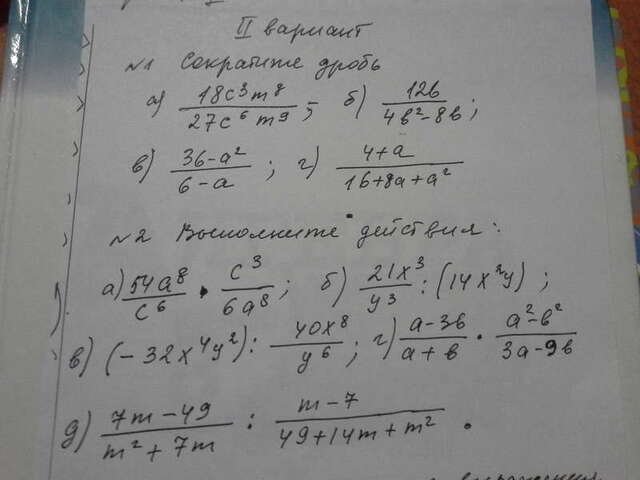 II вариант
№1 Сократите дробь
а) 18c³m⁸/27c⁶m⁹; б) 12b/4b²-8b;
в) 36-a²/6-a; г) 4+a/16+8a+a²
№2 Выполните действия:
а) 54a⁸/c⁶ · c³/6a⁸; б) 21x³/y³ : (14x²y);
в) (-32x⁴y²) : 40x⁸/y⁶; г) a-3b/a+b · a²-b²/3a-9b
д) 7m-49/m²+7m : m-7/49+14m+m².